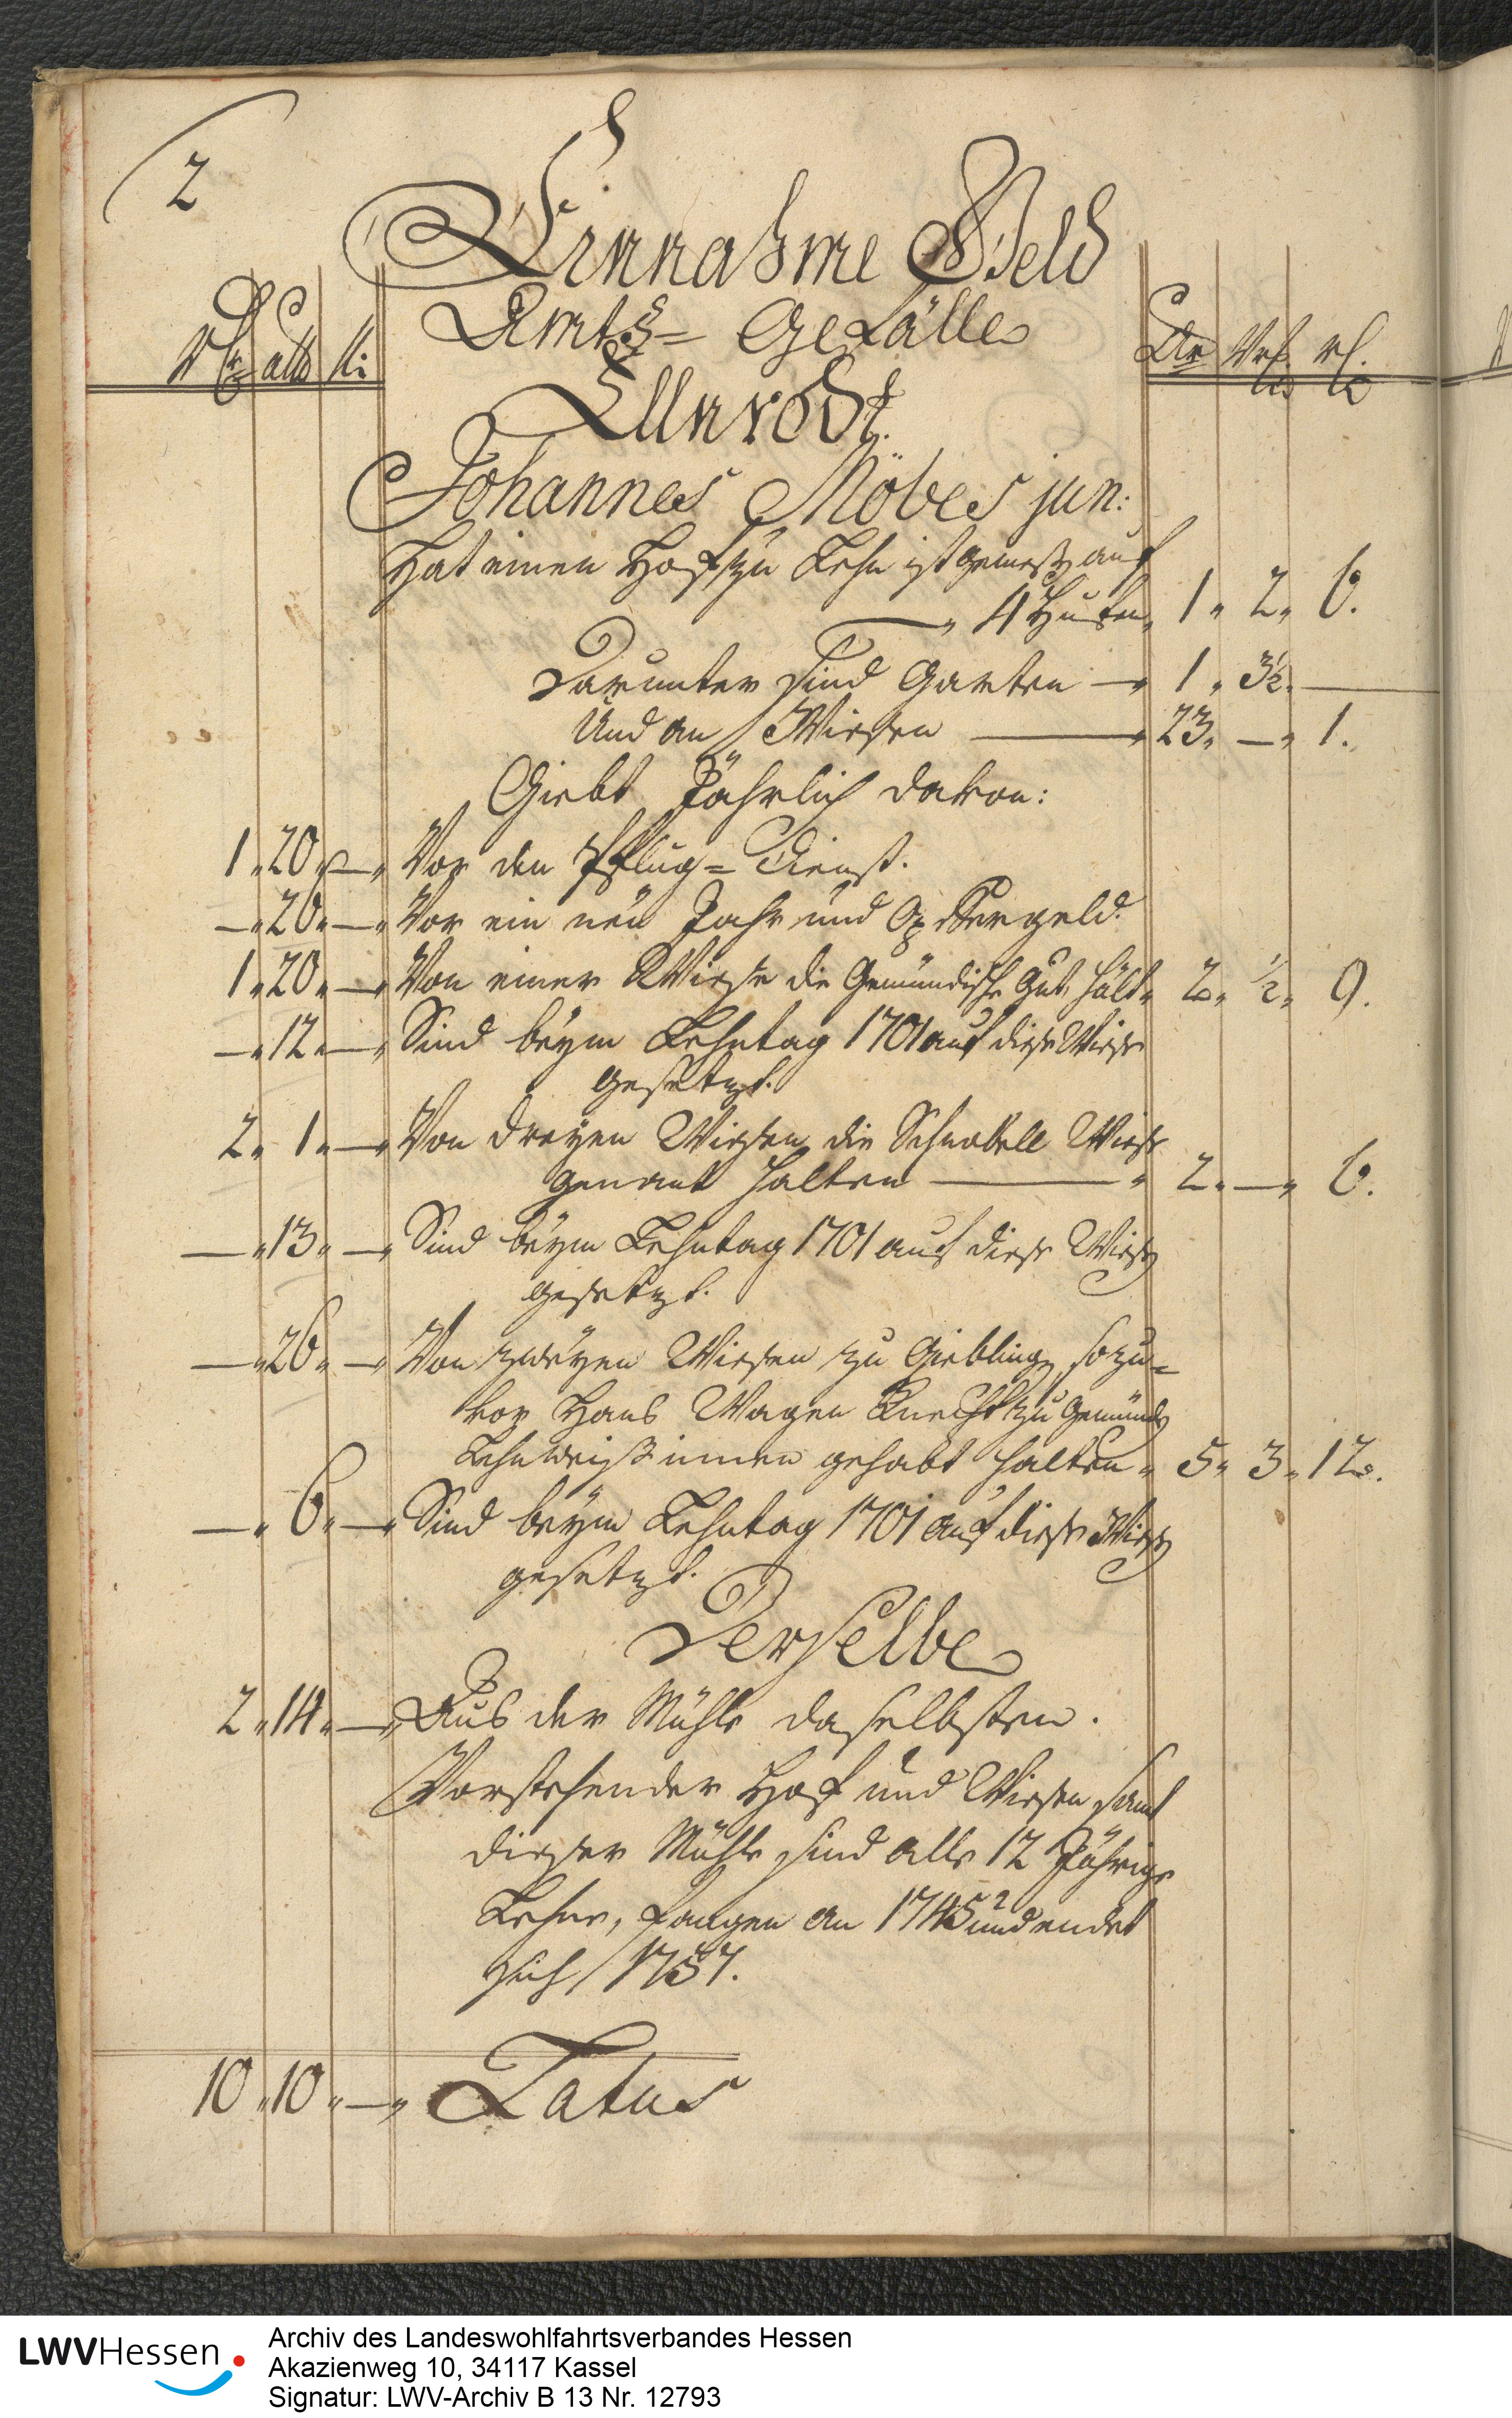 2
Einnahme Geld
Amts= Gefälle
Rth alb hl:
Akr Vrtl rt.
Ellnrodt.
Johannes Möbes jun:
Hat einen Hof zu Lehn ist gemeß auf
4 Hufen, 1 „ 2 „ 6.
Darunter sind Garten — 1 „ 3½. —
Und an Wiesen — 23 „ — „ 1.
Giebt Jährlich davon:
1 „ 20 „ — „ Vor den Pflug= Dienst.
— „ 20 „ — „ Vor ein neü Jahr und Opffergeld.
1 „ 20 „ — „ Von einer Wiese die Gemündische Gut, hält „ 2 „ ½ „ 9.
— „ 12 „ — „ Sind beÿm Lehntag 1701 auf diese Wiese
gesetzt.
2 „ 1 „ — „ Von dreÿen Wiesen die Schnabell Wiese
genant halten — „ 2 „ — „ 6.
— „ 13 „ — „ Sind beÿm Lehntag 1701 auf diese Wiesen
gesetzt.
— „ 26 „ — „ Von zweÿen Wiesen zu Giebling, so zu=
vor Hans Wagen Knecht zu Gemünden
Lehnweiß innen gehabt halten „ 5 „ 3 „ 12.
— „ 6 „ — „ Sind beÿm Lehntag 1701 auf diese Wiesen
gesetzt.
Derselbe
2 „ 14 „ — „ Aus der Mühle daselbsten.
Vorstehender Hof und Wiesen samt
dieser Mühle sind alle 12 Jährige
Lehne, fangen an 1745 und endet
sich 1757.
10 „ 10 „ — „ Latus
LWVHessen
Archiv des Landeswohlfahrtsverbandes Hessen
Akazienweg 10, 34117 Kassel
Signatur: LWV-Archiv B 13 Nr. 12793